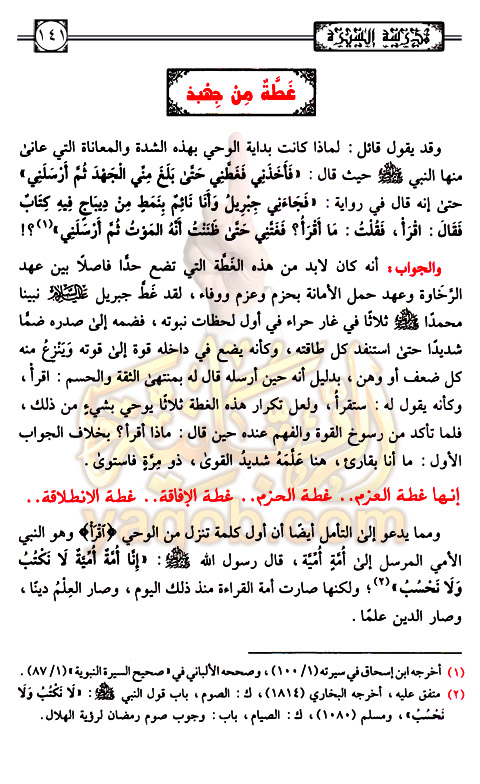 مدرسة السيرة
١٤١
غَطَّةٌ مِنْ جِهْبَذ
وقد يقول قائل : لماذا كانت بداية الوحي بهذه الشدة والمعاناة التي عانىٰ
منها النبي ﷺ حيث قال : «فَأَخَذَنِي فَغَطَّنِي حَتَّىٰ بَلَغَ مِنِّي الْجَهْدَ ثُمَّ أَرْسَلَنِي»
حتىٰ إنه قال في رواية : «فَجَاءَنِي جِبْرِيلُ وَأَنَا نَائِمٌ بِنَمَطٍ مِنْ دِيبَاجٍ فِيهِ كِتَابٌ
فَقَالَ : اقْرَأْ ، فَقُلْتُ : مَا أَقْرَأُ؟ فَغَتَّنِي حَتَّىٰ ظَنَنْتُ أَنَّهُ المَوْتُ ثُمَّ أَرْسَلَنِي»(١)؟!
والجواب : أنه كان لابد من هذه الغَطَّة التي تضع حدًّا فاصلًا بين عهد
الرَّخَاوة وعهد حمل الأمانة بحزم وعزم ووفاء ، لقد غَطَّ جبريل عليه السلام نبينا
محمدًا ﷺ ثلاثًا في غار حراء في أول لحظات نبوته ، فضمه إلىٰ صدره ضمًّا
شديدًا حتىٰ استنفد كل طاقته ، وكأنه يضع في داخله قوة إلىٰ قوته وَيَنْزِعُ منه
كل ضعف أو وهن ، بدليل أنه حين أرسله قال له بمنتهىٰ الثقة والحسم : اقرأ ،
وكأنه يقول له : ستقرأ ، ولعل تكرار هذه الغطة ثلاثًا يوحي بشيءٍ من ذلك ،
فلما تأكد من رسوخ القوة والفهم عنده حين قال : ماذا أقرأ؟ بخلاف الجواب
الأول : ما أنا بقارئ ، هنا عَلَّمَهُ شديدُ القوىٰ ، ذو مِرَّةٍ فاستوىٰ .
إنـها غطة العزم.. غطة الحزم.. غطة الإفاقة.. غطة الانطلاقة..
ومما يدعو إلىٰ التأمل أيضًا أن أول كلمة تنزل من الوحي ﴿اقْرَأْ﴾ وهو النبي
الأمي المرسل إلىٰ أُمَّةٍ أُمِّيَّة ، قال رسول الله ﷺ : «إِنَّا أُمَّةٌ أُمِّيَّةٌ لَا نَكْتُبُ
وَلَا نَحْسُبُ»(٢)؛ ولكنها صارت أمة القراءة منذ ذلك اليوم ، وصار العِلْمُ دينًا ،
وصار الدين علمًا .
(١) أخرجه ابن إسحاق في سيرته (١/ ١٠٠) ، وصححه الألباني في «صحيح السيرة النبوية» (١/ ٨٧) .
(٢) متفق عليه ، أخرجه البخاري (١٨١٤) ، ك : الصوم ، باب قول النبي ﷺ : «لَا نَكْتُبُ وَلَا
نَحْسُبُ» ، ومسلم (١٠٨٠) ، ك : الصيام ، باب : وجوب صوم رمضان لرؤية الهلال.
yaqob.com